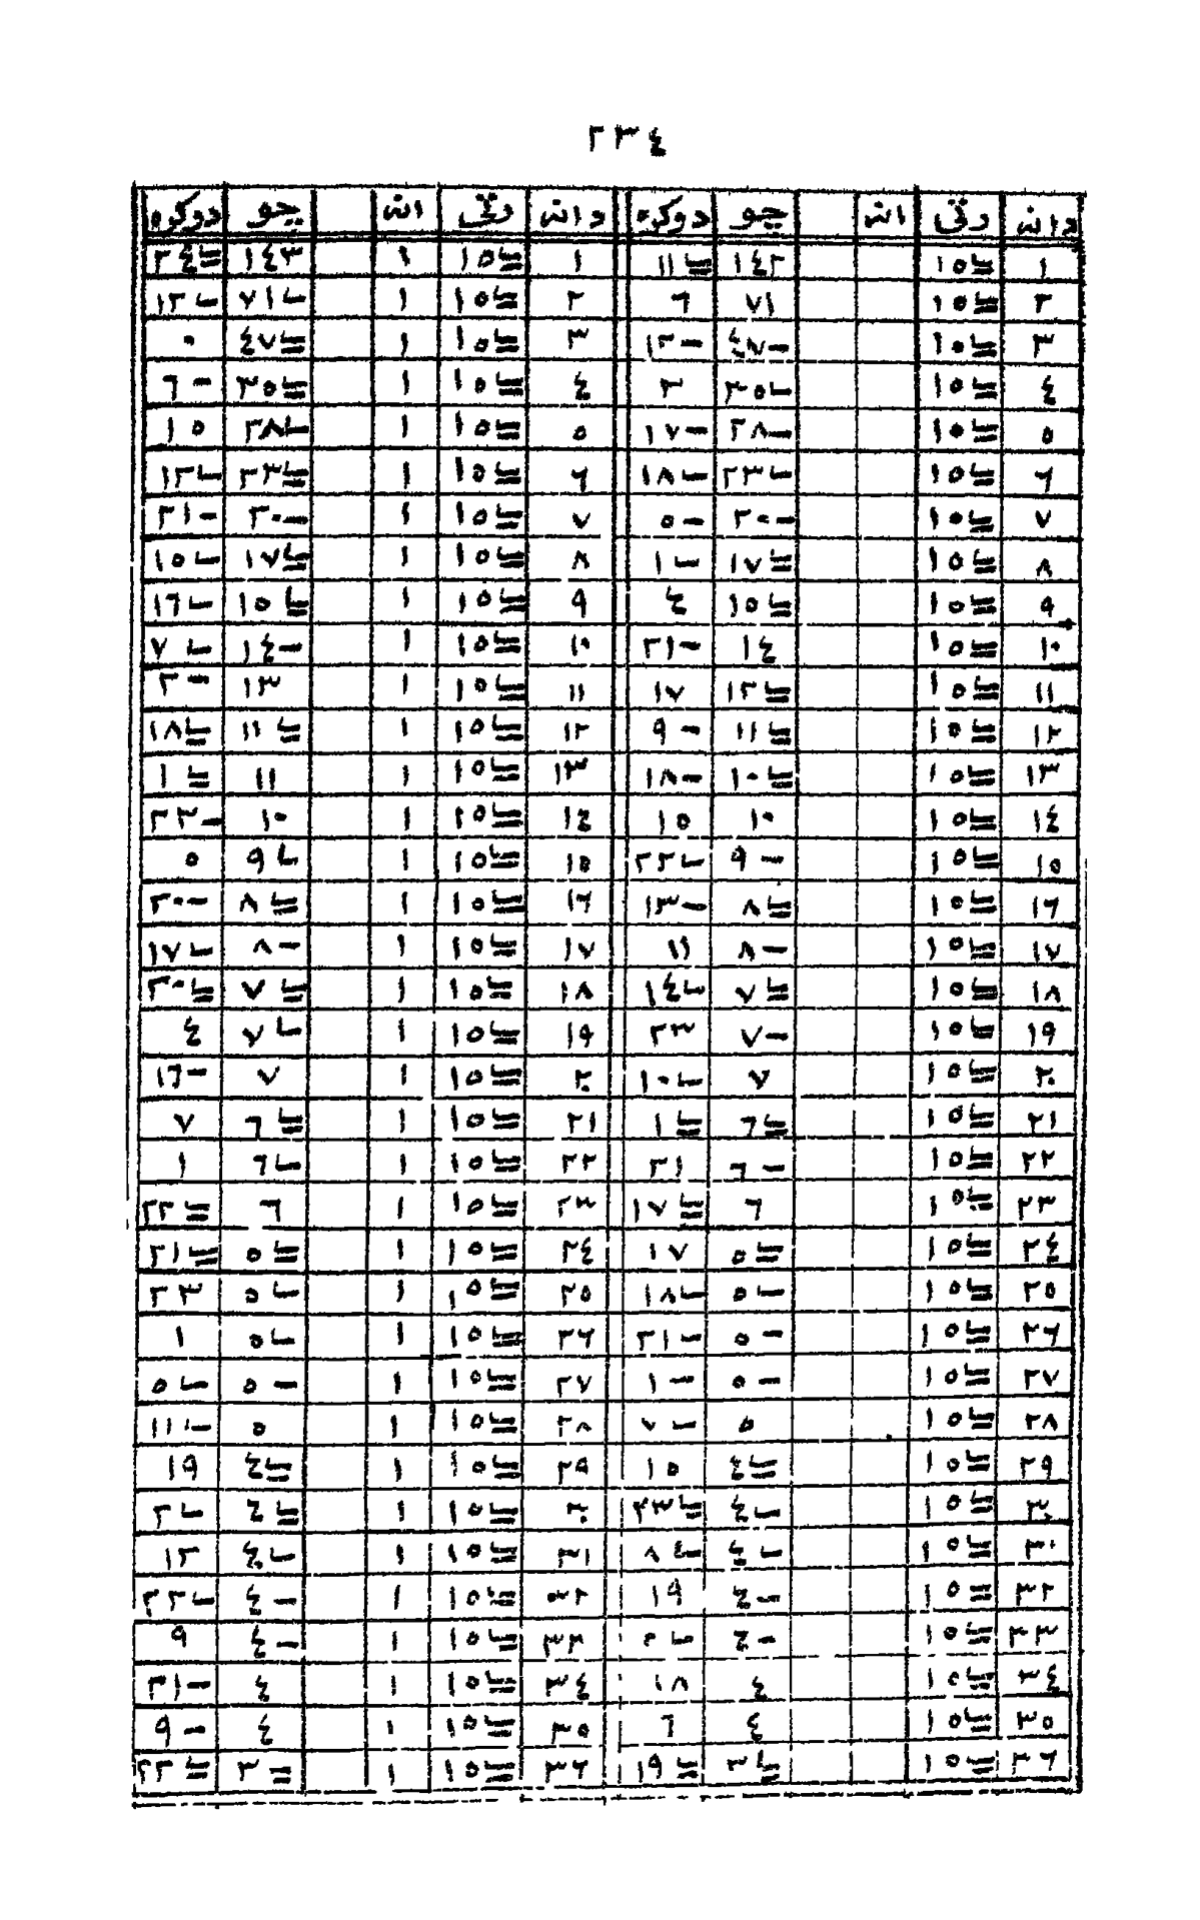 ٢٣٤
دانه رتي انه چو دوكره دانه رتي انه چو دوكره
١ ١٥ ١٤٢ ١١ ١ ١٥ ١ ١٤٣ ٢٤
٢ ١٥ ٧١ ٦ ٢ ١٥ ١ ٧١ ١٢
٣ ١٥ ٤٧- ١٢- ٣ ١٥ ١ ٤٧ ٠
٤ ١٥ ٣٥ ٣ ٤ ١٥ ١ ٣٥ ٦-
٥ ١٥ ٢٨- ١٧- ٥ ١٥ ١ ٢٨ ١٥
٦ ١٥ ٢٣ ١٨ ٦ ١٥ ١ ٢٣ ١٢
٧ ١٥ ٢٠- ٥- ٧ ١٥ ١ ٢٠- ٢١-
٨ ١٥ ١٧ ١ ٨ ١٥ ١ ١٧ ١٥
٩ ١٥ ١٥ ٤ ٩ ١٥ ١ ١٥ ١٦
١٠ ١٥ ١٤ ٢١- ١٠ ١٥ ١ ١٤- ٧
١١ ١٥ ١٢ ١٧ ١١ ١٥ ١ ١٣ ٢-
١٢ ١٥ ١١ ٩- ١٢ ١٥ ١ ١١ ١٨
١٣ ١٥ ١٠ ١٨- ١٣ ١٥ ١ ١١ ١
١٤ ١٥ ١٠ ١٥ ١٤ ١٥ ١ ١٠ ٢٣-
١٥ ١٥ ٩- ٢٢ ١٥ ١٥ ١ ٩ ٥
١٦ ١٥ ٨ ١٣- ١٦ ١٥ ١ ٨ ٢٠-
١٧ ١٥ ٨- ١١ ١٧ ١٥ ١ ٨- ١٧
١٨ ١٥ ٧ ١٤ ١٨ ١٥ ١ ٧ ٢٠
١٩ ١٥ ٧- ٢٣ ١٩ ١٥ ١ ٧ ٤
٢٠ ١٥ ٧ ١٠ ٢٠ ١٥ ١ ٧ ١٦-
٢١ ١٥ ٦ ١ ٢١ ١٥ ١ ٦ ٧
٢٢ ١٥ ٦- ٢١ ٢٢ ١٥ ١ ٦ ١
٢٣ ١٥ ٦ ١٧ ٢٣ ١٥ ١ ٦ ٢٢
٢٤ ١٥ ٥ ١٧ ٢٤ ١٥ ١ ٥ ٢١
٢٥ ١٥ ٥ ١٨ ٢٥ ١٥ ١ ٥ ٢٣
٢٦ ١٥ ٥- ٢١- ٢٦ ١٥ ١ ٥ ١
٢٧ ١٥ ٥- ١- ٢٧ ١٥ ١ ٥- ٥
٢٨ ١٥ ٥ ٧ ٢٨ ١٥ ١ ٥ ١١-
٢٩ ١٥ ٤ ١٥ ٢٩ ١٥ ١ ٤ ١٩
٣٠ ١٥ ٤ ٢٣ ٣٠ ١٥ ١ ٤ ٢
٣١ ١٥ ٤ ٨ ٣١ ١٥ ١ ٤ ١٢
٣٢ ١٥ ٤- ١٩ ٣٢ ١٥ ١ ٤- ٢٢
٣٣ ١٥ ٤- ٥ ٣٣ ١٥ ١ ٤- ٩
٣٤ ١٥ ٤ ١٨ ٣٤ ١٥ ١ ٤ ٢١-
٣٥ ١٥ ٤ ٦ ٣٥ ١٥ ١ ٤ ٩-
٣٦ ١٥ ٣ ١٩ ٣٦ ١٥ ١ ٣ ٢٢